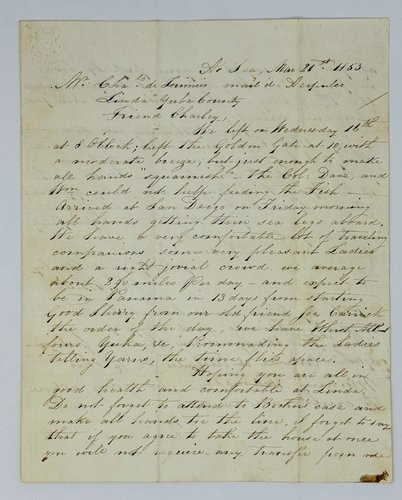 At Sea, Mar 21st. 1853
Mr. Chas. de mail'd Acapulco
Linda Yuba County
Friend Charley,
We left on Wednesday 16th
at 5 O'Clock; left the Golden Gate at 10, with
a moderate breeze, but just enough to make
all hands "squeamish" - the Col: Dave, and
Wm could not help feeding the Fish -
Arrived at San Diego on Friday morning
all hands getting their sea legs aboard.
We have a very comfortable lot of traveling
companions some very pleasant Ladies
and a right jovial crowd. we average
about 290 miles Per day - and expect to
be in Panama in 13 days from starting
Good Sherry from our old friend Joe
the order of the day, we have Whist, all
fours, Yuka, &c. Promonading the Ladies
telling Yarns, the time flies apace.
Hoping you are all in
good health and comfortable at Linda,
Do not forget to attend to case and
make all hands toe the line, I forgot to say
that if you agree to take the house at once
you will not require any transfer from me